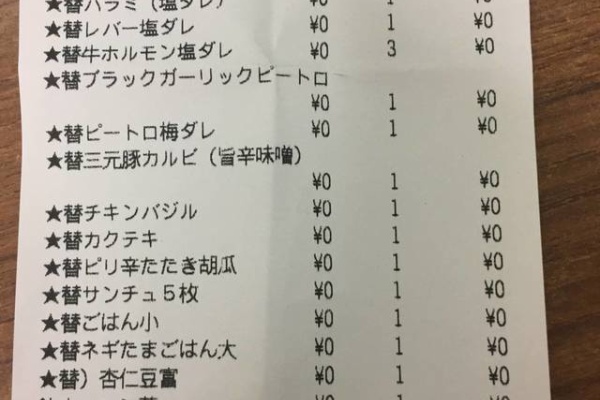 ★替ハラミ（塩ダレ） ¥0 1 ¥0
★替レバー塩ダレ ¥0 1 ¥0
★替牛ホルモン塩ダレ ¥0 3 ¥0
★替ブラックガーリックピートロ
¥0 1 ¥0
★替ピートロ梅ダレ ¥0 1 ¥0
★替三元豚カルビ（旨辛味噌）
¥0 1 ¥0
★替チキンバジル ¥0 1 ¥0
★替カクテキ ¥0 1 ¥0
★替ピリ辛たたき胡瓜 ¥0 1 ¥0
★替サンチュ５枚 ¥0 1 ¥0
★替ごはん小 ¥0 1 ¥0
★替ネギたまごはん大 ¥0 1 ¥0
★替）杏仁豆富 ¥0 1 ¥0